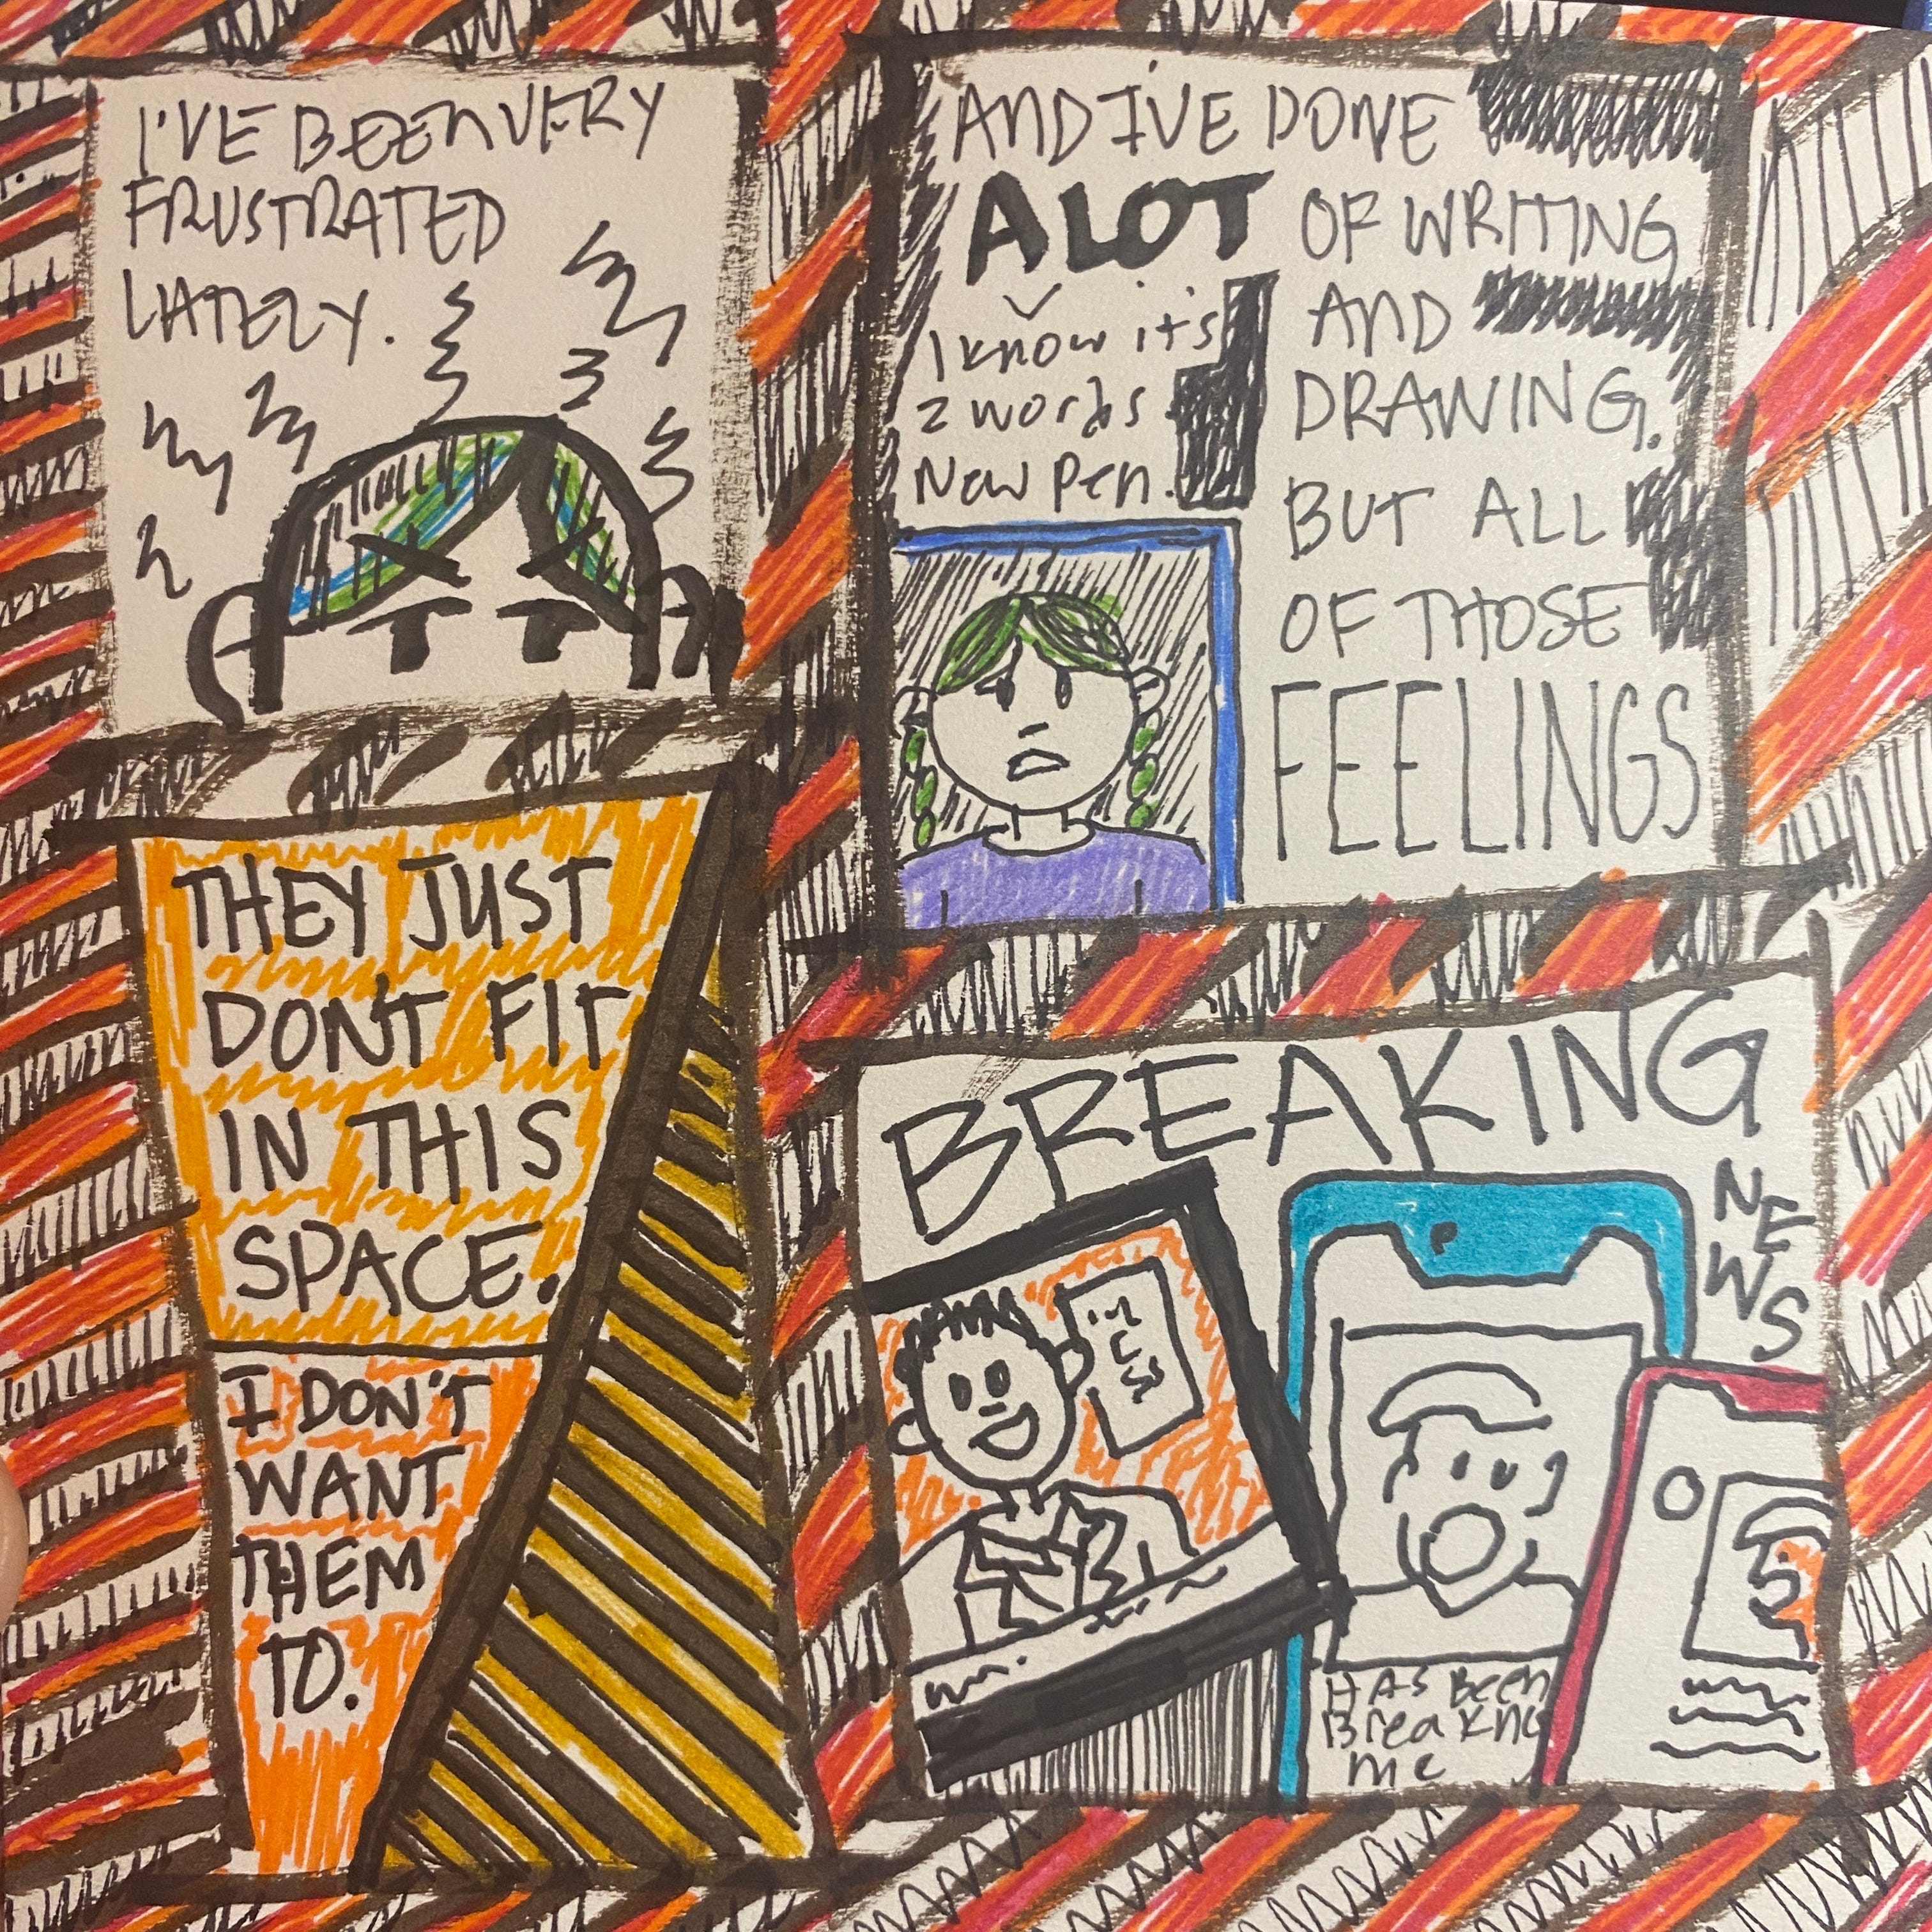 I'VE BEEN VERY
FRUSTRATED
LATELY.
AND I'VE DONE
A LOT OF WRITING
I know it's
2 words
New Pen.
AND
DRAWING.
BUT ALL
OF THOSE
FEELINGS
THEY JUST
DON'T FIT
IN THIS
SPACE.
I DON'T
WANT
THEM
TO.
BREAKING
NEWS
HAS BEEN
BreaKNG
me